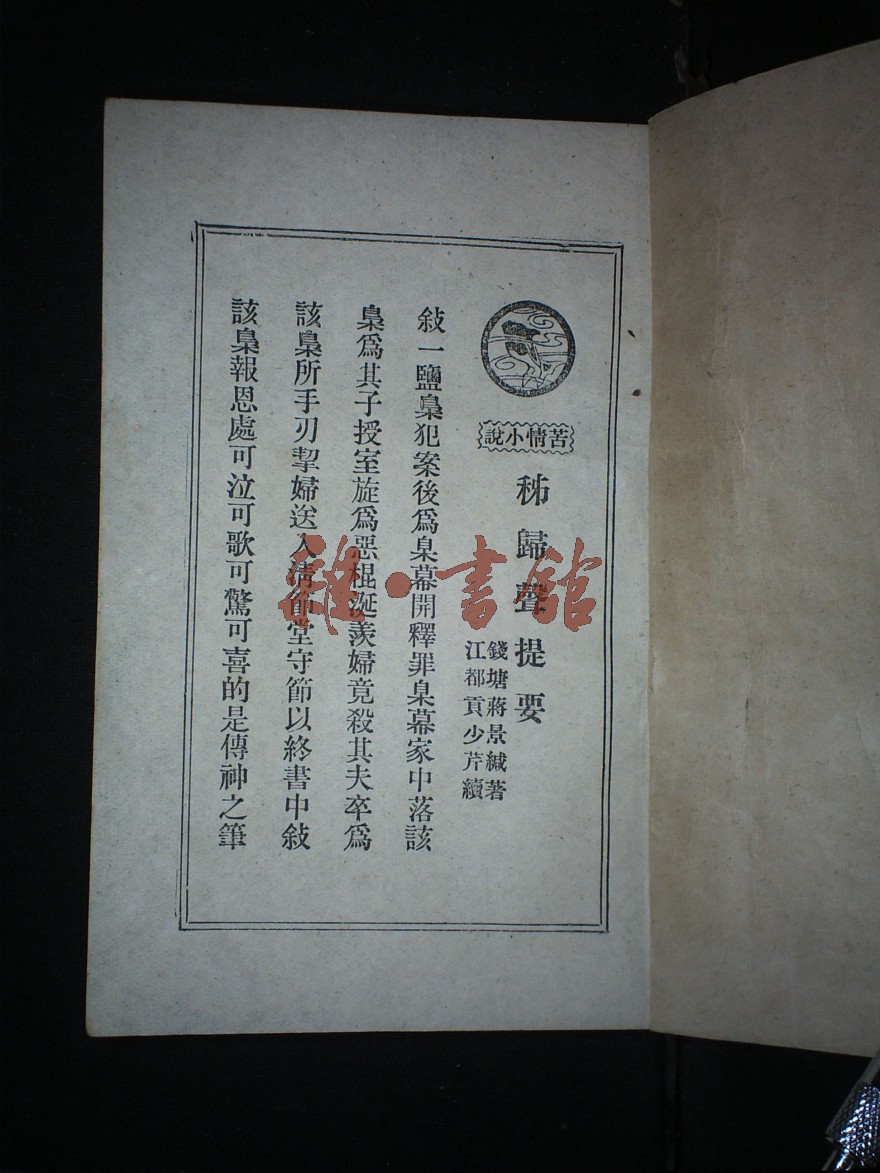 苦情小說
秭歸聲提要
錢塘蔣景緘著
江都貢少芹續
敍一鹽梟犯案後爲臬幕開釋罪臬幕家中落該
梟爲其子授室旋爲惡棍涎羨婦竟殺其夫卒爲
該梟所手刃挈婦送入清節堂守節以終書中敍
該梟報恩處可泣可歌可驚可喜的是傳神之筆
雅·書館